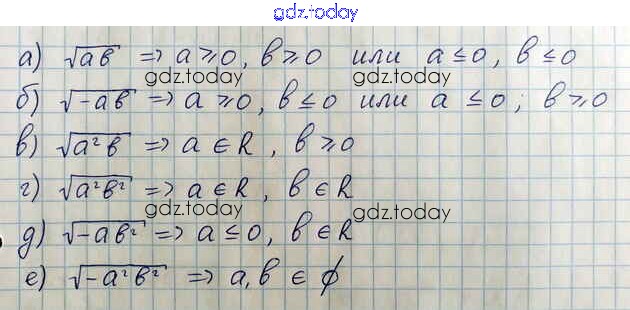 gdz.today
а) √ab => a ⩾ 0, b ⩾ 0 или a ≤ 0, b ≤ 0
gdz.today gdz.today
б) √-ab => a ⩾ 0, b ≤ 0 или a ≤ 0; b ⩾ 0
в) √a²b => a ∈ R, b ⩾ 0
г) √a²b² => a ∈ R, b ∈ R
gdz.today gdz.today
д) √-ab² => a ≤ 0, b ∈ R
е) √-a²b² => a, b ∈ ∅